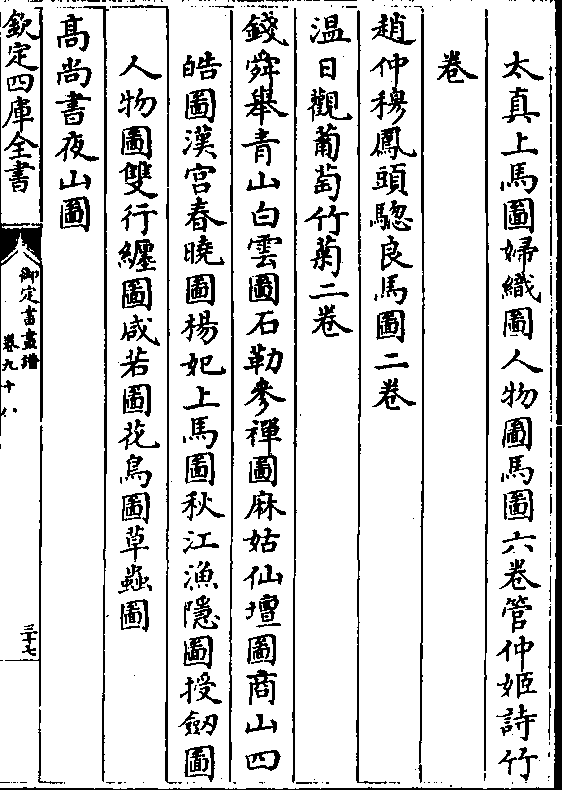 太真上馬圖婦織圖人物圖馬圖六卷管仲姬詩竹
卷
趙仲穆鳳頭驄良馬圖二卷
温日觀葡萄竹菊二卷
錢舜舉青山白雲圖石勒參禪圖麻姑仙壇圖商山四
皓圖漢宫春曉圖楊妃上馬圖秋江漁隱圖授劒圖
人物圖雙行纏圖咸若圖花鳥圖草蟲圖
髙尚書夜山圖
欽定四庫全書
御定書畫譜
卷九十
三十七